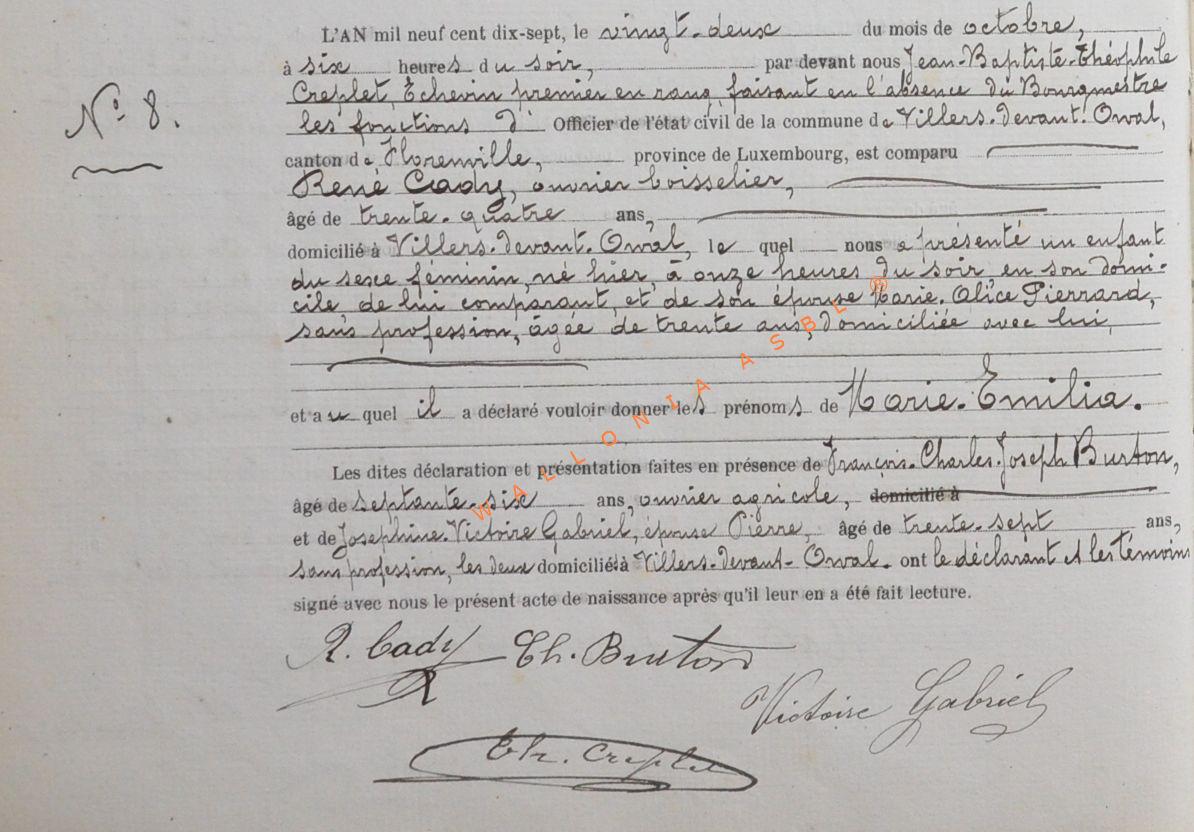 L'AN mil neuf cent dix-sept, le vingt-deux du mois de octobre,
à six heures du soir, par devant nous Jean-Baptiste-Théophile
Creplet, Echevin premier en rang, faisant en l'absence du Bourgmestre
les fonctions d' Officier de l'état civil de la commune de Villers-devant-Orval,
N° 8.
canton de Florenville, province de Luxembourg, est comparu
René Cady, ouvrier boisselier,
âgé de trente-quatre ans,
domicilié à Villers-devant-Orval, le quel nous a présenté un enfant
du sexe féminin, né hier, à onze heures du soir en son domi-
cile, de lui comparant, et de son épouse Marie-Alice Pierrard,
sans profession, âgée de trente ans, domiciliée avec lui,
et au quel il a déclaré vouloir donner les prénoms de Marie-Emilia.
Les dites déclaration et présentation faites en présence de François-Charles-Joseph Burton,
âgé de septante-six ans, ouvrier agricole, domicilié à
et de Josephine-Victoire Gabriel, épouse Pierre, âgé de trente-sept ans,
sans profession, les deux domiciliés à Villers-devant-Orval. ont le déclarant et les témoins
signé avec nous le présent acte de naissance après qu'il leur en a été fait lecture.
R. Cady Ch. Burton
Victoire Gabriel
Th. Creplet
WALLONIA ASBL ®